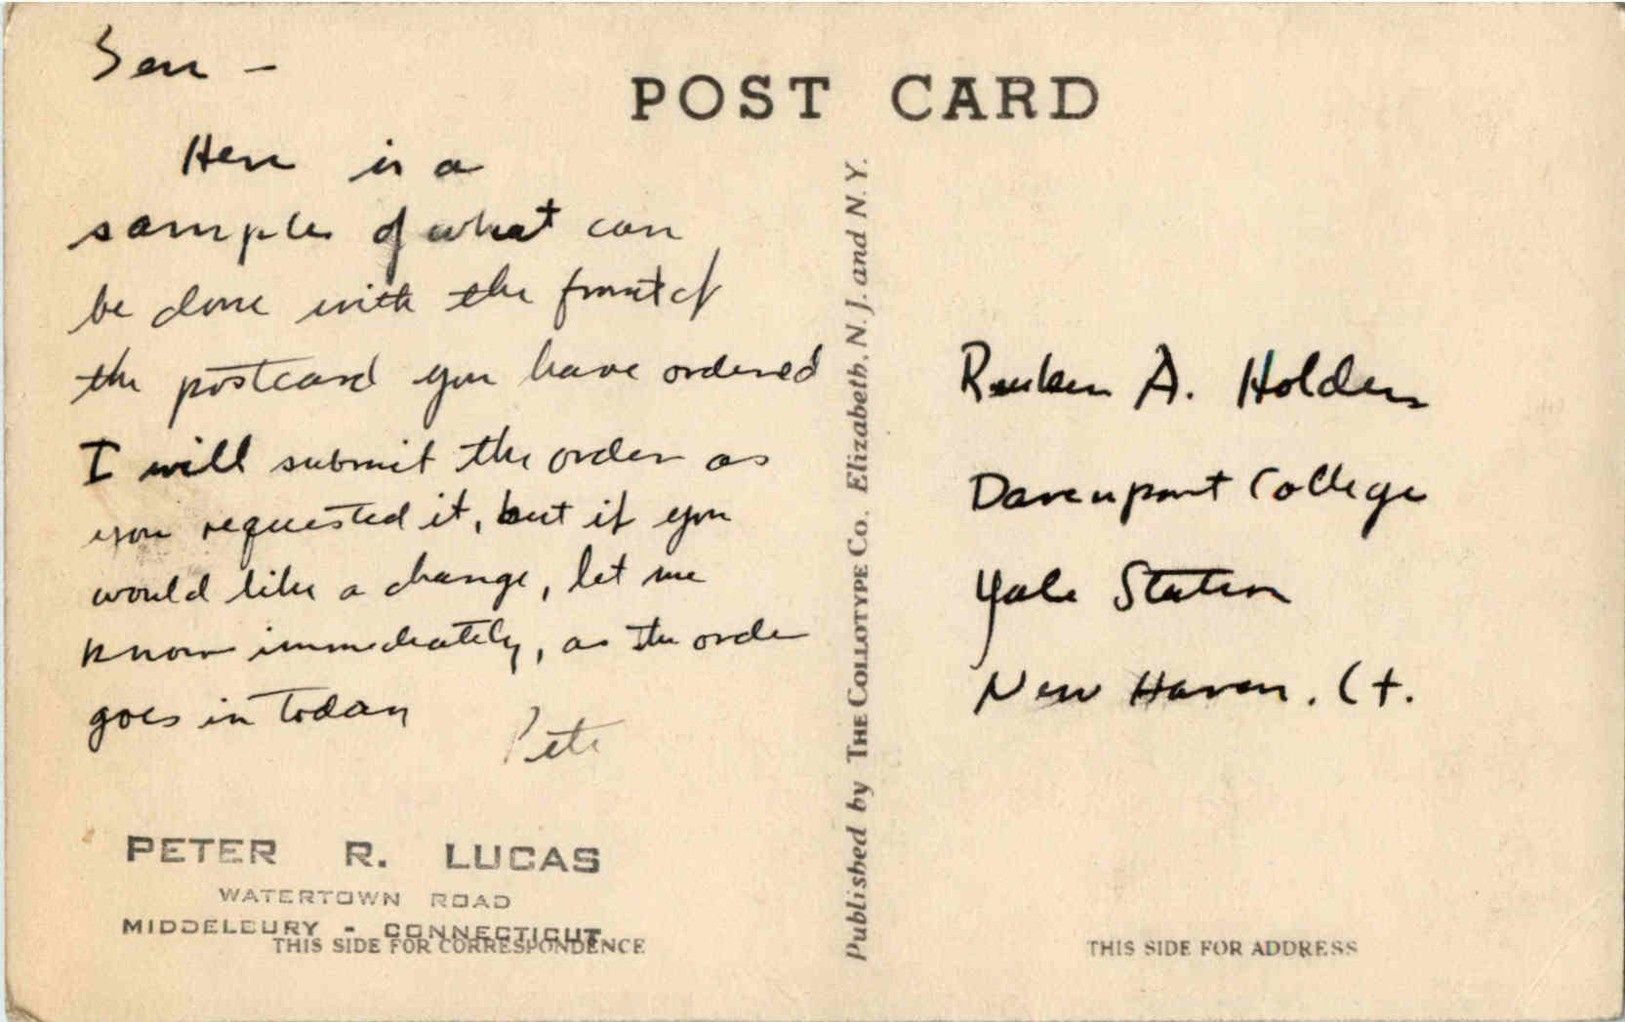 POST CARD
Here is a
sample of what can
be done with the front of
the postcard you have ordered
I will submit the order as
you requested it, but if you
would like a change, let me
know immediately, as the order
goes in today
Pete
PETER R. LUCAS
WATERTOWN ROAD
MIDDLEBURY - CONNECTICUT
THIS SIDE FOR CORRESPONDENCE
Published by THE COLLOTYPE Co. Elizabeth, N. J. and N. Y.
Reuben A. Holden
Davenport College
Yale Station
New Haven, Ct.
THIS SIDE FOR ADDRESS